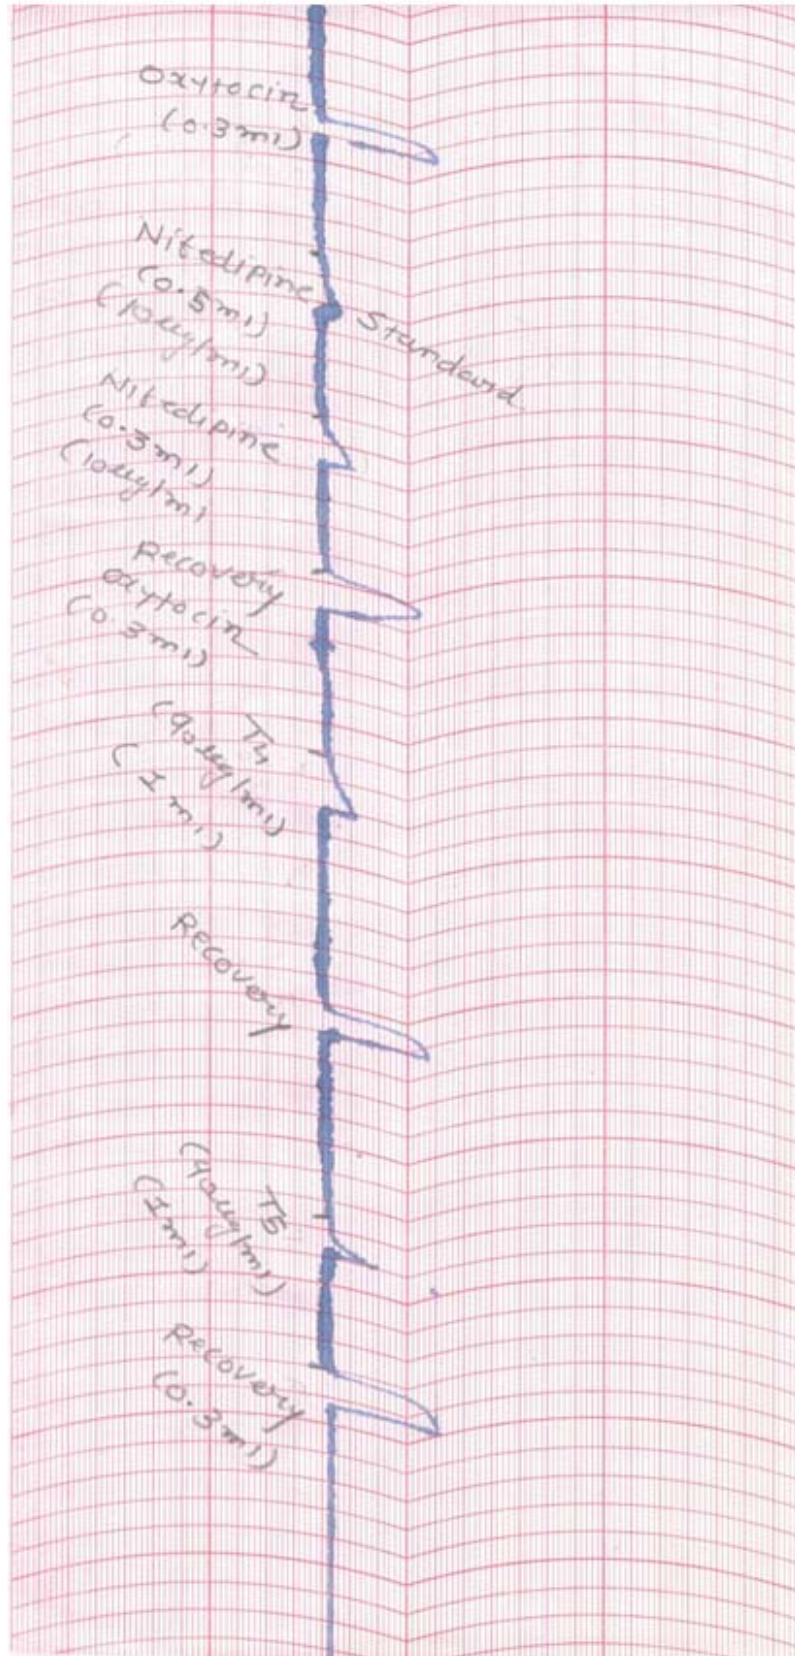 Oxytocin
(0.3ml)
Nifedipine
(0.5ml)
(10ug/ml)
Standard
Nifedipine
(0.3ml)
(10ug/ml
Recovery
oxytocin
(0.3ml)
T4
(40ug/ml)
(1ml)
Recovery
T5
(40ug/ml)
(1ml)
Recovery
(0.3ml)